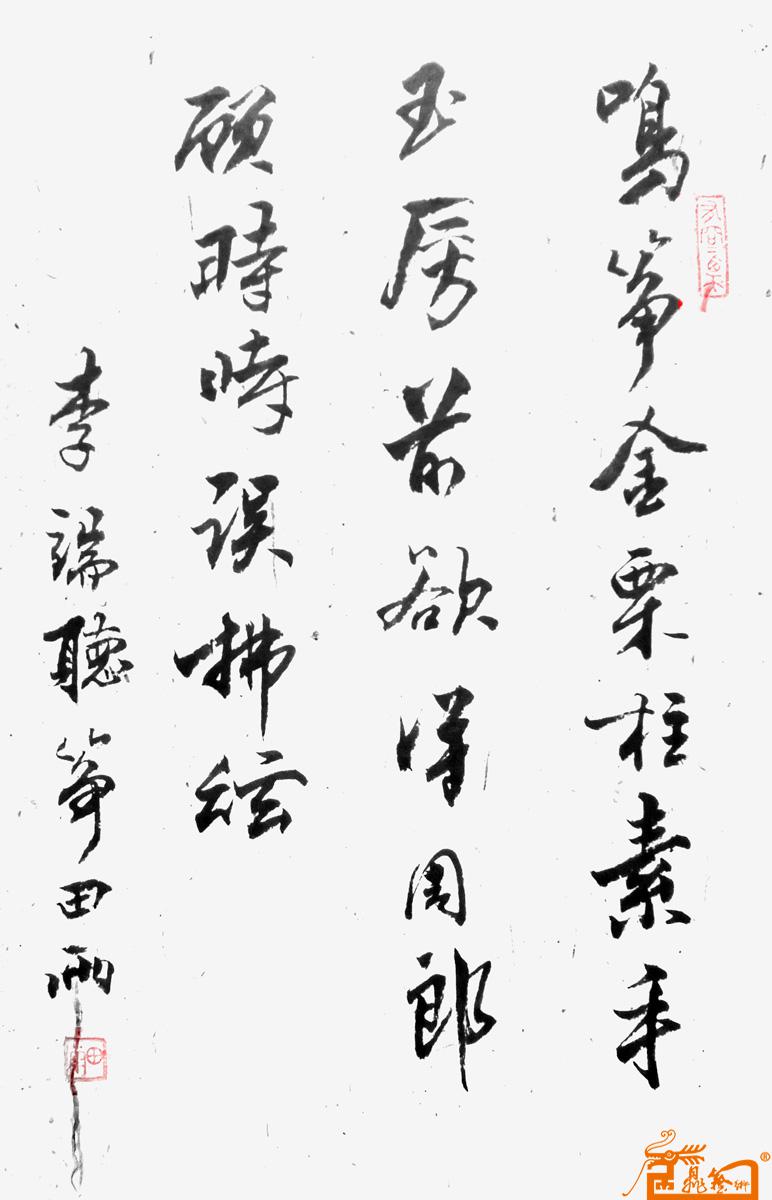 鳴箏金栗柱素手
玉房前欲得周郎
顧時時誤拂絃
李端聽箏田雨